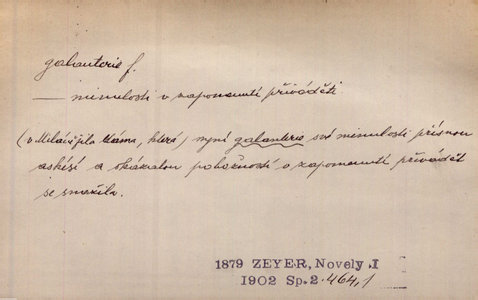 galanterie f.
— minulosti v zapomenutí přiváděti.
(v Miláně žila dáma, která) nyní galanterie své minulosti přísnou
askésí a okázalou pobožností v zapomenutí přivádět
se snažila.
1879 ZEYER, Novely I
1902 Sp. 2. 464,1